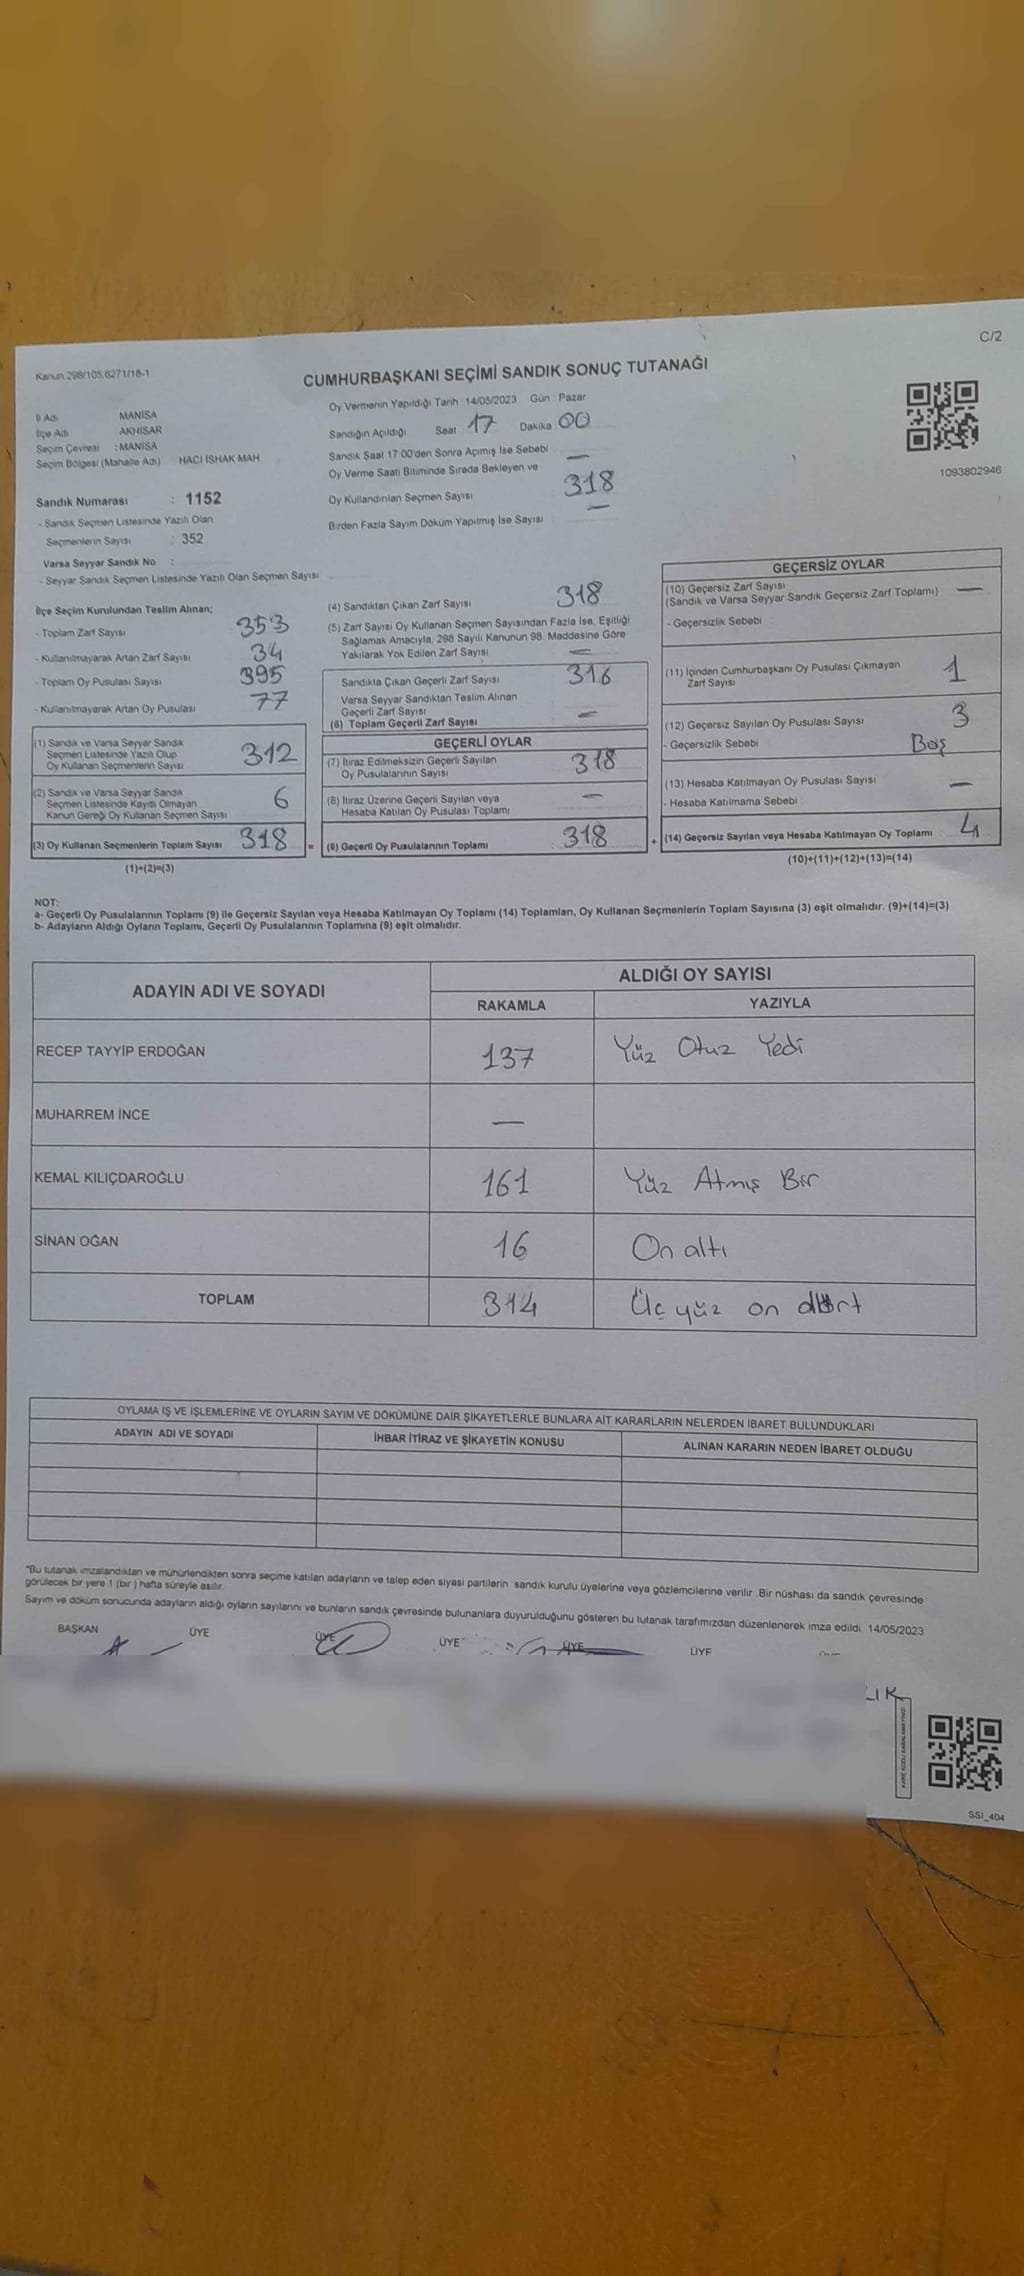 C/2
Kanun 298/105,6271/18-1
CUMHURBAŞKANI SEÇİMİ SANDIK SONUÇ TUTANAĞI
İl Adı MANİSA
İlçe Adı AKHİSAR
Seçim Çevresi : MANİSA
Seçim Bölgesi (Mahalle Adı) HACI İSHAK MAH.
Sandık Numarası : 1152
- Sandık Seçmen Listesinde Yazılı Olan
Seçmenlerin Sayısı : 352
Varsa Seyyar Sandık No :
- Seyyar Sandık Seçmen Listesinde Yazılı Olan Seçmen Sayısı
Oy Vermenin Yapıldığı Tarih 14/05/2023 Gün : Pazar
Sandığın Açıldığı Saat 17 Dakika 00
Sandık Saat 17:00'den Sonra Açımış İse Sebebi —
Oy Verme Saati Bitiminde Sırada Bekleyen ve
Oy Kullandırılan Seçmen Sayısı 318
Birden Fazla Sayım Döküm Yapılmış İse Sayısı : —
1093802946
İlçe Seçim Kurulundan Teslim Alınan;
- Toplam Zarf Sayısı 353
- Kullanılmayarak Artan Zarf Sayısı 34
- Toplam Oy Pusulası Sayısı 395
- Kullanılmayarak Artan Oy Pusulası 77
(1) Sandık ve Varsa Seyyar Sandık
Seçmen Listesinde Yazılı Olup
Oy Kullanan Seçmenlerin Sayısı 312
(2) Sandık ve Varsa Seyyar Sandık
Seçmen Listesinde Kayıtlı Olmayan
Kanun Gereği Oy Kullanan Seçmen Sayısı 6
(3) Oy Kullanan Seçmenlerin Toplam Sayısı 318 =
(1)+(2)=(3)
(4) Sandıktan Çıkan Zarf Sayısı 318
(5) Zarf Sayısı Oy Kullanan Seçmen Sayısından Fazla İse, Eşitliği
Sağlamak Amacıyla, 298 Sayılı Kanunun 98. Maddesine Göre
Yakılarak Yok Edilen Zarf Sayısı —
Sandıkta Çıkan Geçerli Zarf Sayısı 316
Varsa Seyyar Sandıktan Teslim Alınan
Geçerli Zarf Sayısı —
(6) Toplam Geçerli Zarf Sayısı
GEÇERLİ OYLAR
(7) İtiraz Edilmeksizin Geçerli Sayılan
Oy Pusulalarının Sayısı 318
(8) İtiraz Üzerine Geçerli Sayılan veya
Hesaba Katılan Oy Pusulası Toplamı —
(9) Geçerli Oy Pusulalarının Toplamı 318 +
GEÇERSİZ OYLAR
(10) Geçersiz Zarf Sayısı
(Sandık ve Varsa Seyyar Sandık Geçersiz Zarf Toplamı) —
- Geçersizlik Sebebi :
(11) İçinden Cumhurbaşkanı Oy Pusulası Çıkmayan
Zarf Sayısı 1
(12) Geçersiz Sayılan Oy Pusulası Sayısı 3
- Geçersizlik Sebebi Boş
(13) Hesaba Katılmayan Oy Pusulası Sayısı —
- Hesaba Katılmama Sebebi :
(14) Geçersiz Sayılan veya Hesaba Katılmayan Oy Toplamı 4
(10)+(11)+(12)+(13)=(14)
NOT:
a- Geçerli Oy Pusulalarının Toplamı (9) ile Geçersiz Sayılan veya Hesaba Katılmayan Oy Toplamı (14) Toplamları, Oy Kullanan Seçmenlerin Toplam Sayısına (3) eşit olmalıdır. (9)+(14)=(3)
b- Adayların Aldığı Oyların Toplamı, Geçerli Oy Pusulalarının Toplamına (9) eşit olmalıdır.
ADAYIN ADI VE SOYADI ALDIĞI OY SAYISI
RAKAMLA YAZIYLA
RECEP TAYYİP ERDOĞAN 137 Yüz Otuz Yedi
MUHARREM İNCE —
KEMAL KILIÇDAROĞLU 161 Yüz Atmış Bir
SİNAN OĞAN 16 On altı
TOPLAM 314 Üç yüz on dört
OYLAMA İŞ VE İŞLEMLERİNE VE OYLARIN SAYIM VE DÖKÜMÜNE DAİR ŞİKAYETLERLE BUNLARA AİT KARARLARIN NELERDEN İBARET BULUNDUKLARI
ADAYIN ADI VE SOYADI İHBAR İTİRAZ VE ŞİKAYETİN KONUSU ALINAN KARARIN NEDEN İBARET OLDUĞU
*Bu tutanak imzalandıktan ve mühürlendikten sonra seçime katılan adayların ve talep eden siyasi partilerin sandık kurulu üyelerine veya gözlemcilerine verilir. Bir nüshası da sandık çevresinde
görülecek bir yere 1 (bir) hafta süreyle asılır.
Sayım ve döküm sonucunda adayların aldığı oyların sayılarını ve bunların sandık çevresinde bulunanlara duyurulduğunu gösteren bu tutanak tarafımızdan düzenlenerek imza edildi. 14/05/2023
BAŞKAN ÜYE ÜYE ÜYE ÜYE ÜYE
LIK
SSI_404